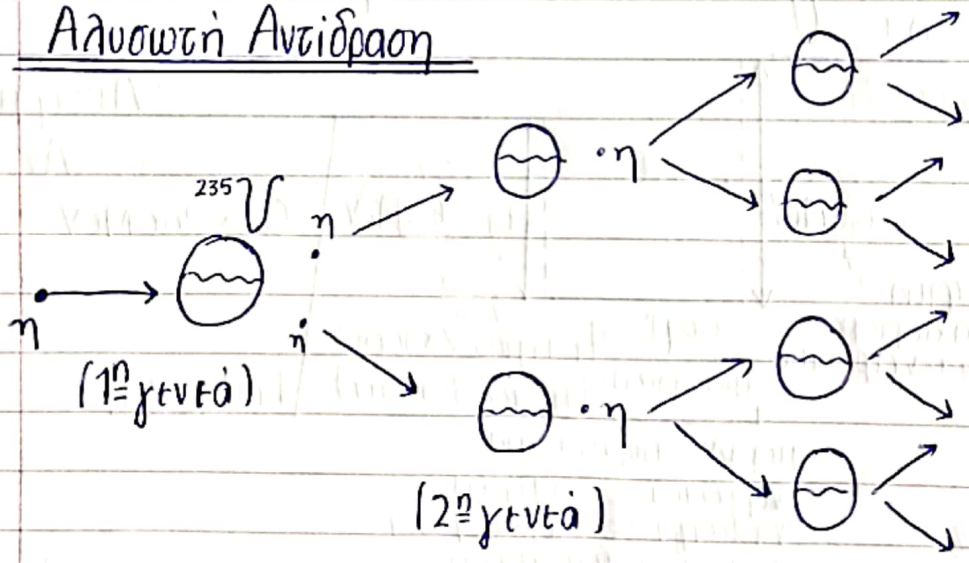 Αλυσωτή Αντίδραση
²³⁵U
η
η
η
(1η γενεά)
·η
·η
(2η γενεά)